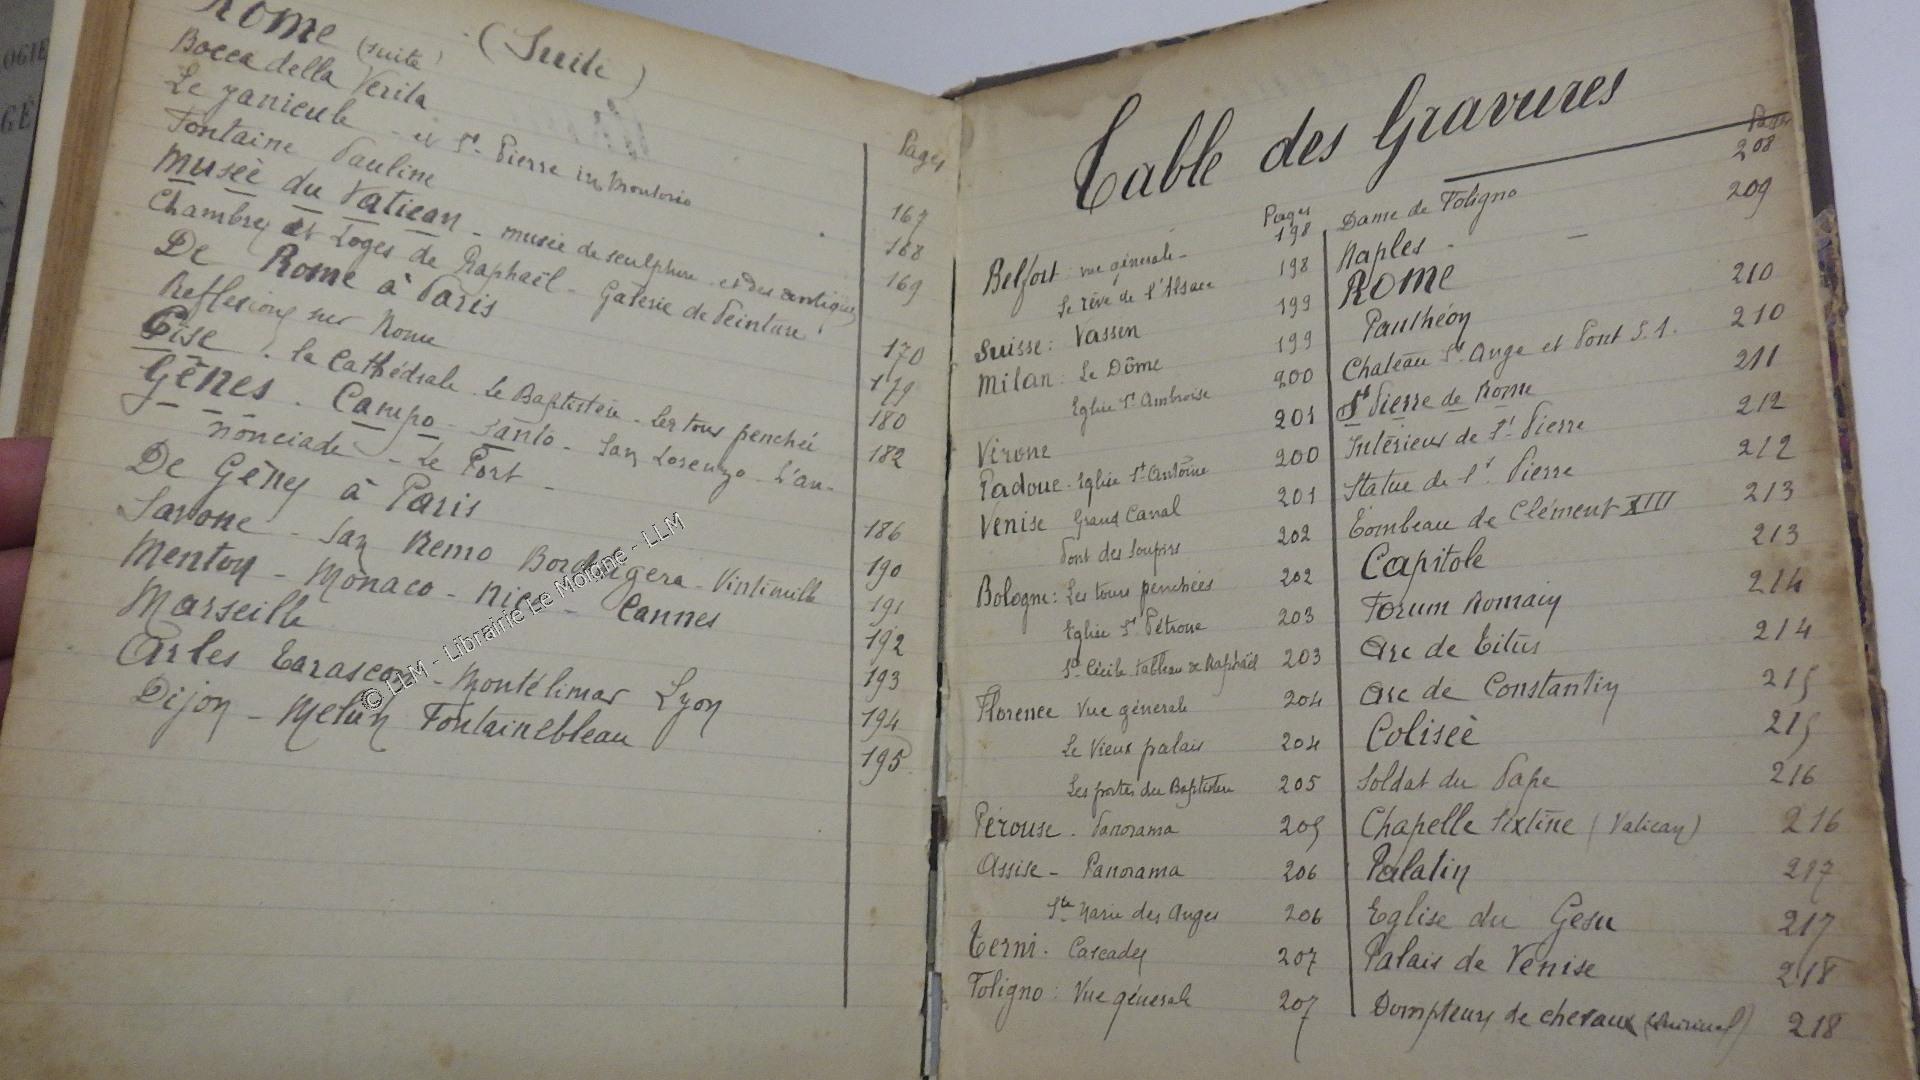 OGIE
GÉ
Rome (suite) - (Suite)
Pages
Bocca della Verita
Le Janicule - et St. Pierre in Montorio 167
Fontaine Pauline 168
Musée du Vatican - musée de sculpture et des antiques 169
Chambres et Loges de Raphaël - Galerie de Peinture
De Rome à Paris 170
Reflexions sur Rome 179
Pise - la Cathédrale - le Baptistère - les tour penchée 180
Gênes - Campo Santo - San Lorenzo - L'an- 182
nonciade - Le Port -
De Gênes à Paris 186
Savone - San Remo Bordighera - Vintimille 190
Menton - Monaco - Nice - Cannes 191
Marseille 192
Arles Tarascon - Montélimar Lyon 193
Dijon - Melun Fontainebleau 194
195
© LLM - Librairie Le Moigne - LLM
Table des Gravures
Pages
Belfort vue générale - 198
Le rêve de l'Alsace 198
Suisse : Vassen 199
Milan : Le Dôme 199
Eglise St Ambroise 200
Vérone 201
Padoue - Eglise St Antoine 200
Venise Grand Canal 201
Pont des Soupirs 202
Bologne : Les tours penchées 202
Eglise St Pétrone 203
Ste Cécile tableau de Raphaël 203
Florence Vue générale 204
Le Vieux palais 204
Les portes du Baptistère 205
Pérouse - Panorama 205
Assise - Panorama 206
Ste Marie des Anges 206
Terni - Cascades 207
Foligno : Vue générale 207
Pages
Dame de Foligno 208
Naples - 209
Rome
Panthéon 210
Chateau St Ange et Pont S. A. 210
St Pierre de Rome 211
Intérieur de St Pierre 212
Statue de St Pierre 212
Tombeau de Clément XIII 213
Capitole 213
Forum Romain 214
Arc de Titus 214
Arc de Constantin 215
Colisée 215
Soldat du Pape 216
Chapelle Sixtine (Vatican) 216
Palatin 217
Eglise du Gesu 217
Palais de Venise 218
Dompteurs de chevaux (Quirinal) 218